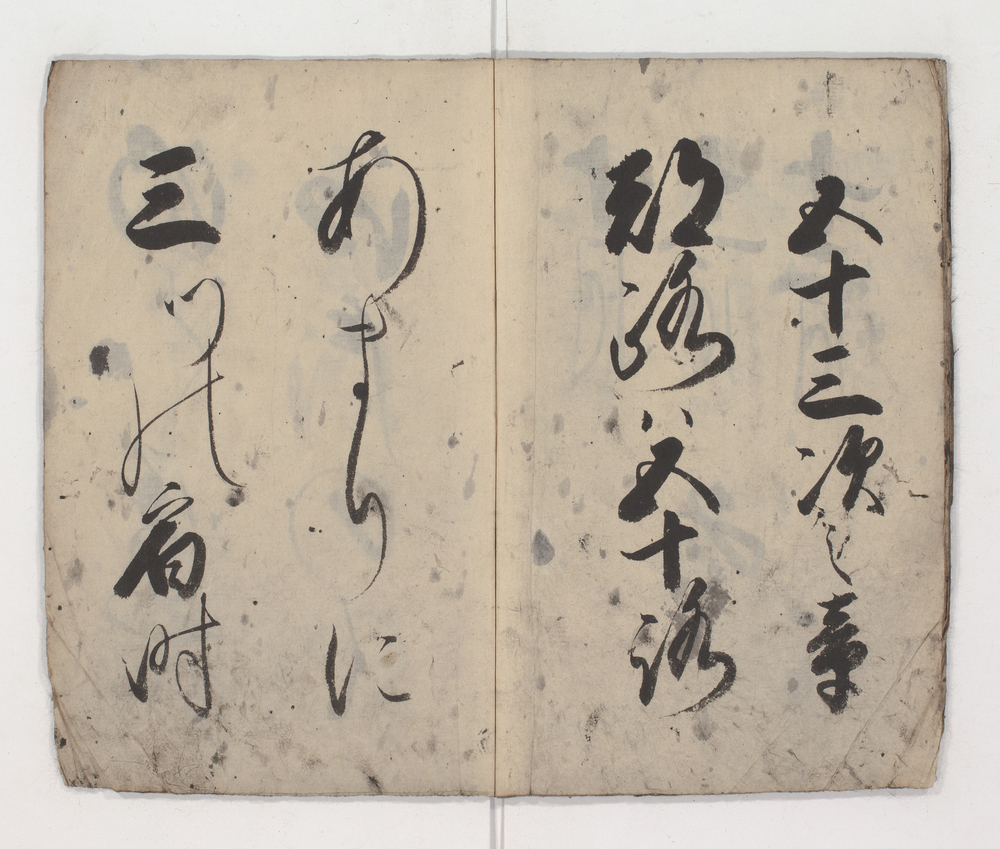 五十三次之章
都路八五十路
あまりに
三つの宿時